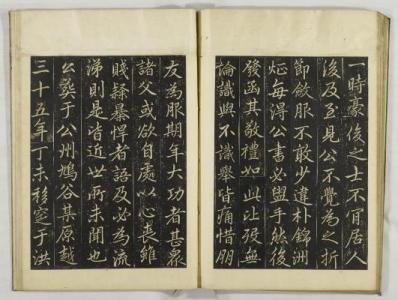 一時豪俊之士不宜居人
後及至見公不覺為之折
節斂服不敢少違朴錦洲
炡每得公書必盥手然後
發函其敬禮如此比歿無
論識與不識擧皆痛惜朋
友為服期年大功者甚衆
諸父或欲自處以心喪雖
賤隷暴悍者語及必為流
涕則是皆近世所未聞也
公葬于公州鳩谷其原越
三十五年丁未移窆于洪